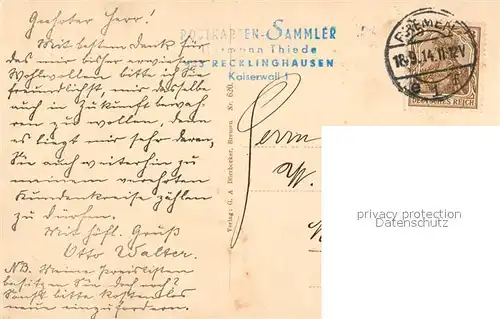 Geehrter Herr!
Mit bestem Dank für
das mir bisher erwiesene
Wohlwollen bitte ich Sie
freundlichst, mir dasselbe
auch in Zukunft bewah-
ren zu wollen, denn
es liegt mir sehr daran,
Sie auch weiterhin zu
meinem verehrten
Kundenkreise zählen
zu dürfen.
Mit höfl. Gruß
Otto Walter.
NB. Meine Preislisten
besitzen Sie doch noch?
Sonst bitte kostenlos
neue einzufordern.
POSTKARTEN-SAMMLER
Hermann Thiede
RECKLINGHAUSEN
Kaiserwall 1
Verlag: G. A. Dörrbecker, Bremen. Nr. 620.
BREMEN
18.9.14.11-12V
DEUTSCHES REICH
Herrn
privacy protection
watermark